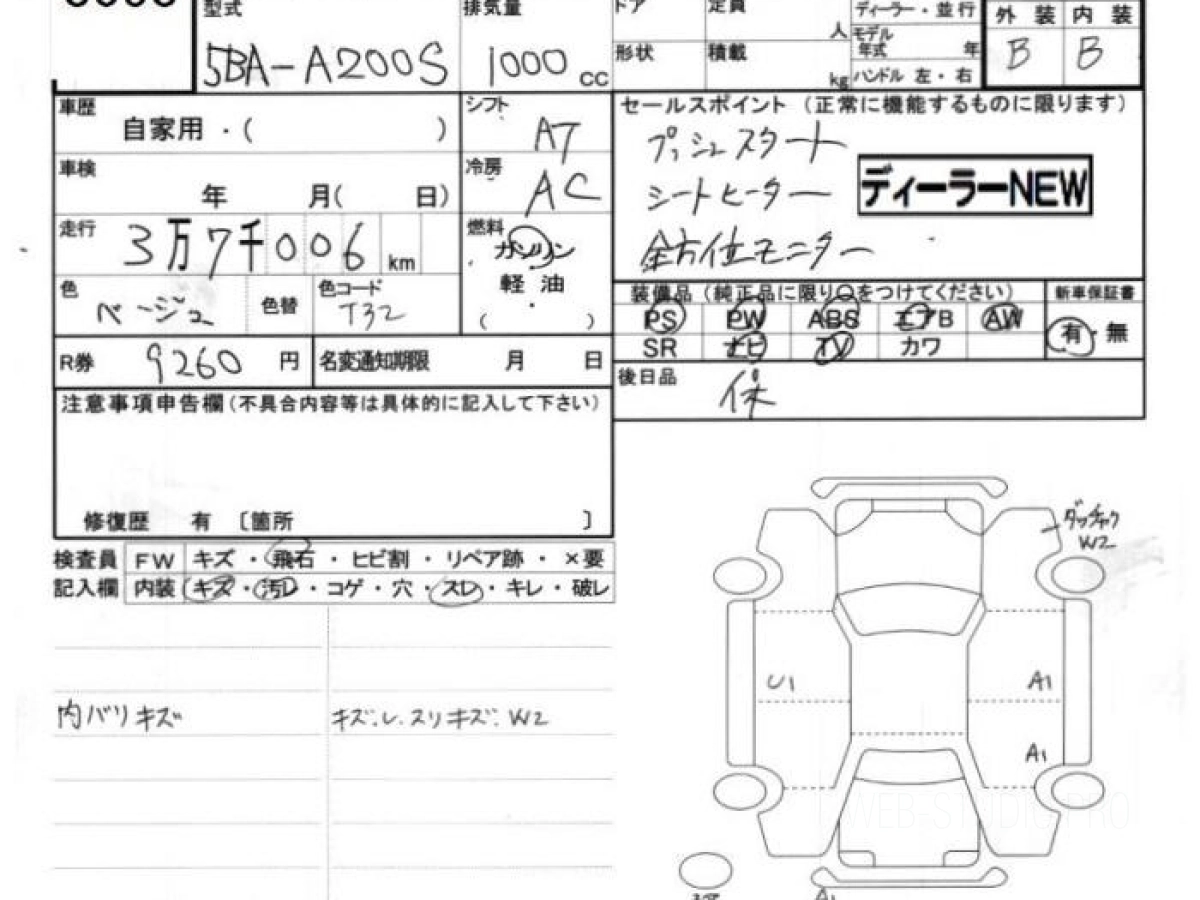 型式 排気量 ドア 定員 人 ディーラー・並行 外装 内装
5BA-A200S 1000 cc 形状 積載 kg モデル年式 年 ハンドル 左・右 B B
車歴 自家用・( ) シフト AT セールスポイント (正常に機能するものに限ります)
プッシュスタート
車検 年 月( 日) 冷房 AC シートヒーター ディーラーNEW
走行 3万7千006 km 燃料 ガソリン 全方位モニター
軽油
( )
色 ベージュ 色替 色コード T32 装備品 (純正品に限り○をつけてください) 新車保証書
PS PW ABS エアB AW 有・無
R券 9260 円 名変通知期限 月 日 SR ナビ TV カワ
後日品 保
注意事項申告欄(不具合内容等は具体的に記入して下さい)
修復歴 有 〔箇所 〕
検査員 FW キズ・飛石・ヒビ割・リペア跡・×要
記入欄 内装 キズ・汚レ・コゲ・穴・スレ・キレ・破レ
ダッチャク
W2
内バリキズ キズ.U.スリキズ.W2
U1 A1
A1
WEB-STUDIO PRO
A1